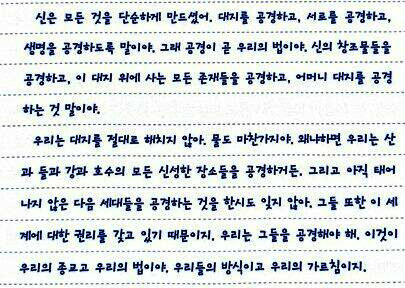 신은 모든 것을 단순하게 만드셨어. 대지를 공경하고, 서로를 공경하고,
생명을 공경하도록 말이야. 그래 공경이 곧 우리의 법이야. 신의 창조물들을
공경하고, 이 대지 위에 사는 모든 존재들을 공경하고, 어머니 대지를 공경
하는 것 말이야.
우리는 대지를 절대로 해치지 않아. 물도 마찬가지야. 왜냐하면 우리는 산
과 들과 강과 호수의 모든 신성한 장소들을 공경하거든. 그리고 아직 태어
나지 않은 다음 세대들을 공경하는 것을 한시도 잊지 않아. 그들 또한 이 세
계에 대한 권리를 갖고 있기 때문이지. 우리는 그들을 공경해야 해. 이것이
우리의 종교고 우리의 법이야. 우리들의 방식이고 우리의 가르침이지.